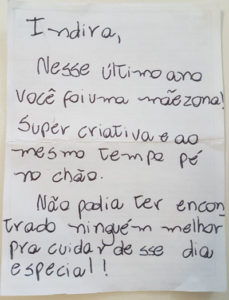 Indira,
Nesse último ano
você foi uma mãezona!
Super criativa e ao
mesmo tempo pé
no chão.
Não podia ter encon
trado ninguém melhor
pra cuidar desse dia
especial!